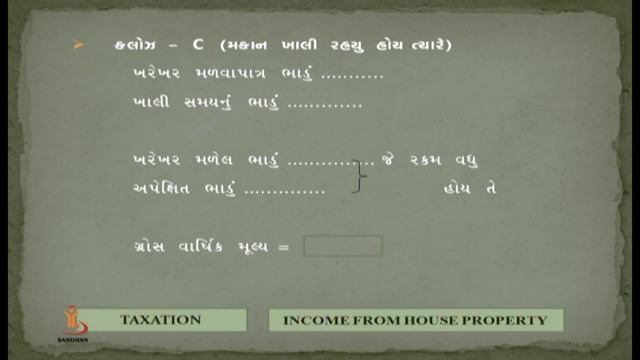 કલોઝ – C (મકાન ખાલી રહયુ હોય ત્યારે)
ખરેખર મળવાપાત્ર ભાડું ...........
ખાલી સમયનું ભાડું .............
ખરેખર મળેલ ભાડું ............... જે રકમ વધુ
અપેક્ષિત ભાડું .............. હોય તે
ગ્રોસ વાર્ષિક મૂલ્ય =
TAXATION
INCOME FROM HOUSE PROPERTY
SANDHAN